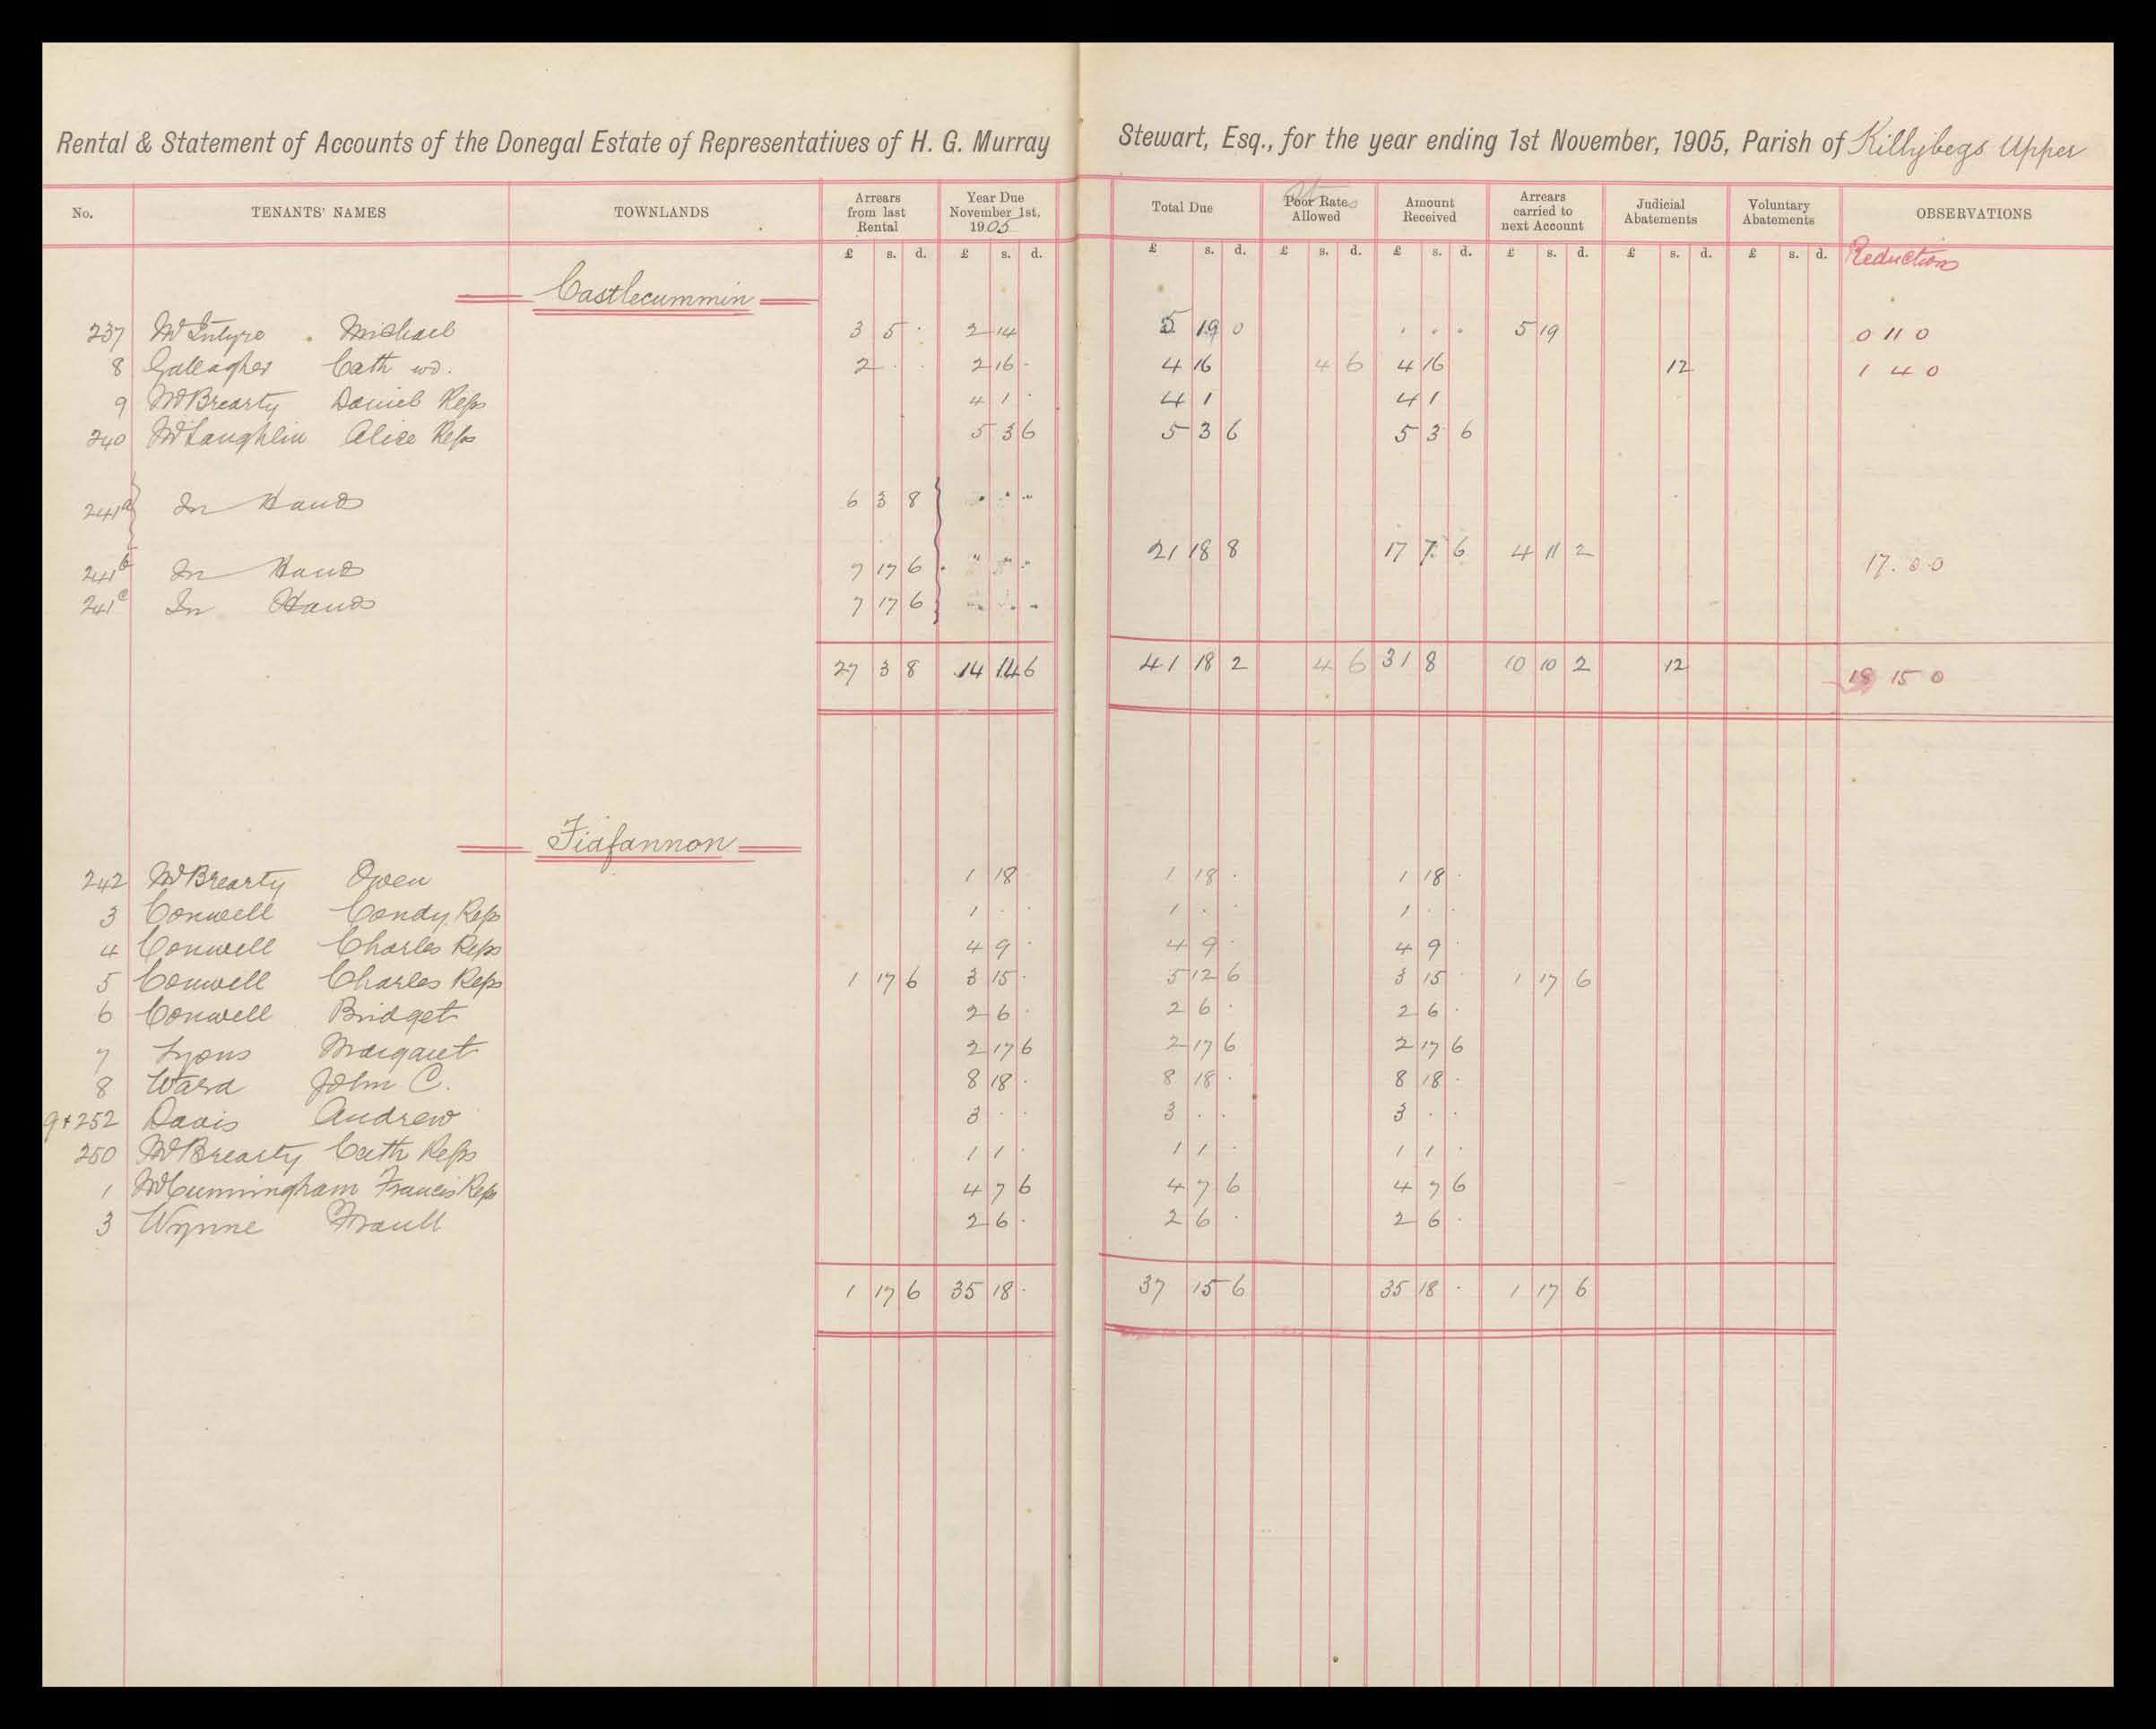 Rental & Statement of Accounts of the Donegal Estate of Representatives of H. G. Murray Stewart, Esq., for the year ending 1st November, 1905, Parish of Killybegs Upper
No. TENANTS' NAMES TOWNLANDS Arrears from last Rental Year Due November 1st, 1905 Total Due Poor Rate Allowed Amount Received Arrears carried to next Account Judicial Abatements Voluntary Abatements OBSERVATIONS
£ s. d. £ s. d. £ s. d. £ s. d. £ s. d. £ s. d. £ s. d. £ s. d. Reductions
Castlecummin
237 McIntyre Michael 3 5 · 2 14 5 19 0 · · · 5 19 0 11 0
8 Gallagher Cath wd. 2 · · 2 16 · 4 16 4 6 4 16 12 1 4 0
9 McBrearty Daniel Reps 4 1 · 4 1 4 1
240 McLaughlin Alice Reps 5 3 6 5 3 6 5 3 6
241a In Hands 6 3 8 · · "
21 18 8 17 7 6 4 11 2 17. 0 0
241b In Hands 7 17 6 " " "
241c In Hands 7 17 6
27 3 8 14 14 6 41 18 2 4 6 31 8 10 10 2 12 18 15 0
Fiafannon
242 McBrearty Owen 1 18 1 18 · 1 18 ·
3 Conwell Condy Reps 1 · · 1 · · 1 · ·
4 Conwell Charles Reps 4 9 · 4 9 · 4 9 ·
5 Conwell Charles Reps 1 17 6 3 15 · 5 12 6 3 15 · 1 17 6
6 Conwell Bridget 2 6 · 2 6 · 2 6 ·
7 Lyons Margaret 2 17 6 2 17 6 2 17 6
8 Ward John C. 8 18 · 8 18 · 8 18 ·
9+252 Davis Andrew 3 · · 3 · · 3 · ·
250 McBrearty Cath Reps 1 1 · 1 1 · 1 1 ·
1 McCunningham Francis Reps 4 7 6 4 7 6 4 7 6
3 Wynne 2 6 · 2 6 · 2 6 ·
1 17 6 35 18 · 37 15 6 35 18 · 1 17 6